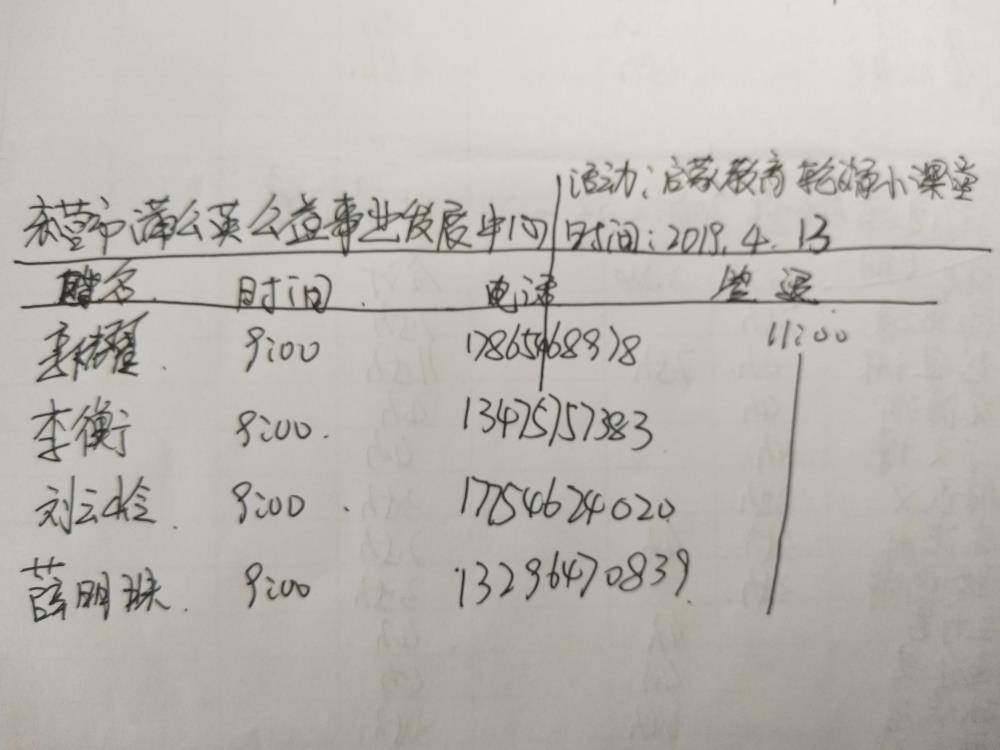 活动:启蒙教育 轮滑小课堂
东营市蒲公英公益事业发展中心 时间:2019.4.13
姓名 时间 电话 签退
李 9:00 17865468978 11:00
李衡 9:00. 13475757383
刘云峰. 9:00. 17754624020
薛明珠. 9:00 13296470839